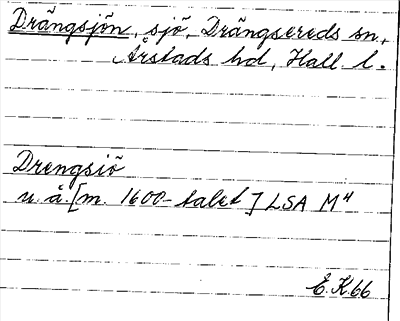 Drängsjön, sjö, Drängsereds sn,
Årstads hd, Hall. l.
Drengsiö
u.å. [m. 1600-talet] LSA M"
E.K.66